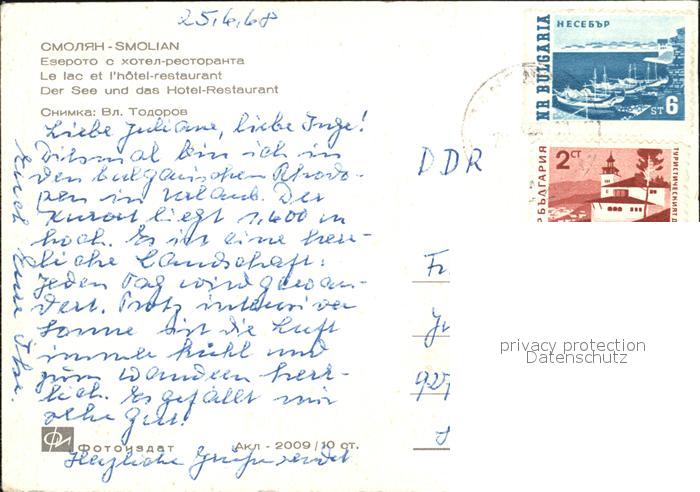 25.6.68
СМОЛЯН - SMOLIAN
Езерото с хотел-ресторанта
Le lac et l'hôtel-restaurant
Der See und das Hotel-Restaurant
Снимка: Вл. Тодоров
Liebe Juliane, liebe Inge!
Diesmal bin ich in
den bulgarischen Rhodo-
pen in Urlaub. Der
Kurort liegt 1,600 m
hoch. Es ist eine herr-
liche Landschaft.
Jeden Tag wird gewan-
dert. Trotz intensiver
Sonne ist die Luft
immer kühl und
zum Wandern herr-
lich. Es gefällt mir
sehr gut!
Herzliche Grüße sendet
Euch Eure
Фотоиздат
Акл - 2009/10 ст.
НЕСЕБЪР
NR BULGARIA
ST 6
2 СТ
БЪЛГАРИЯ
ТУРИСТИЧЕСКИЯТ Д
DDR
Fr.
925
privacy protection
Datenschutz